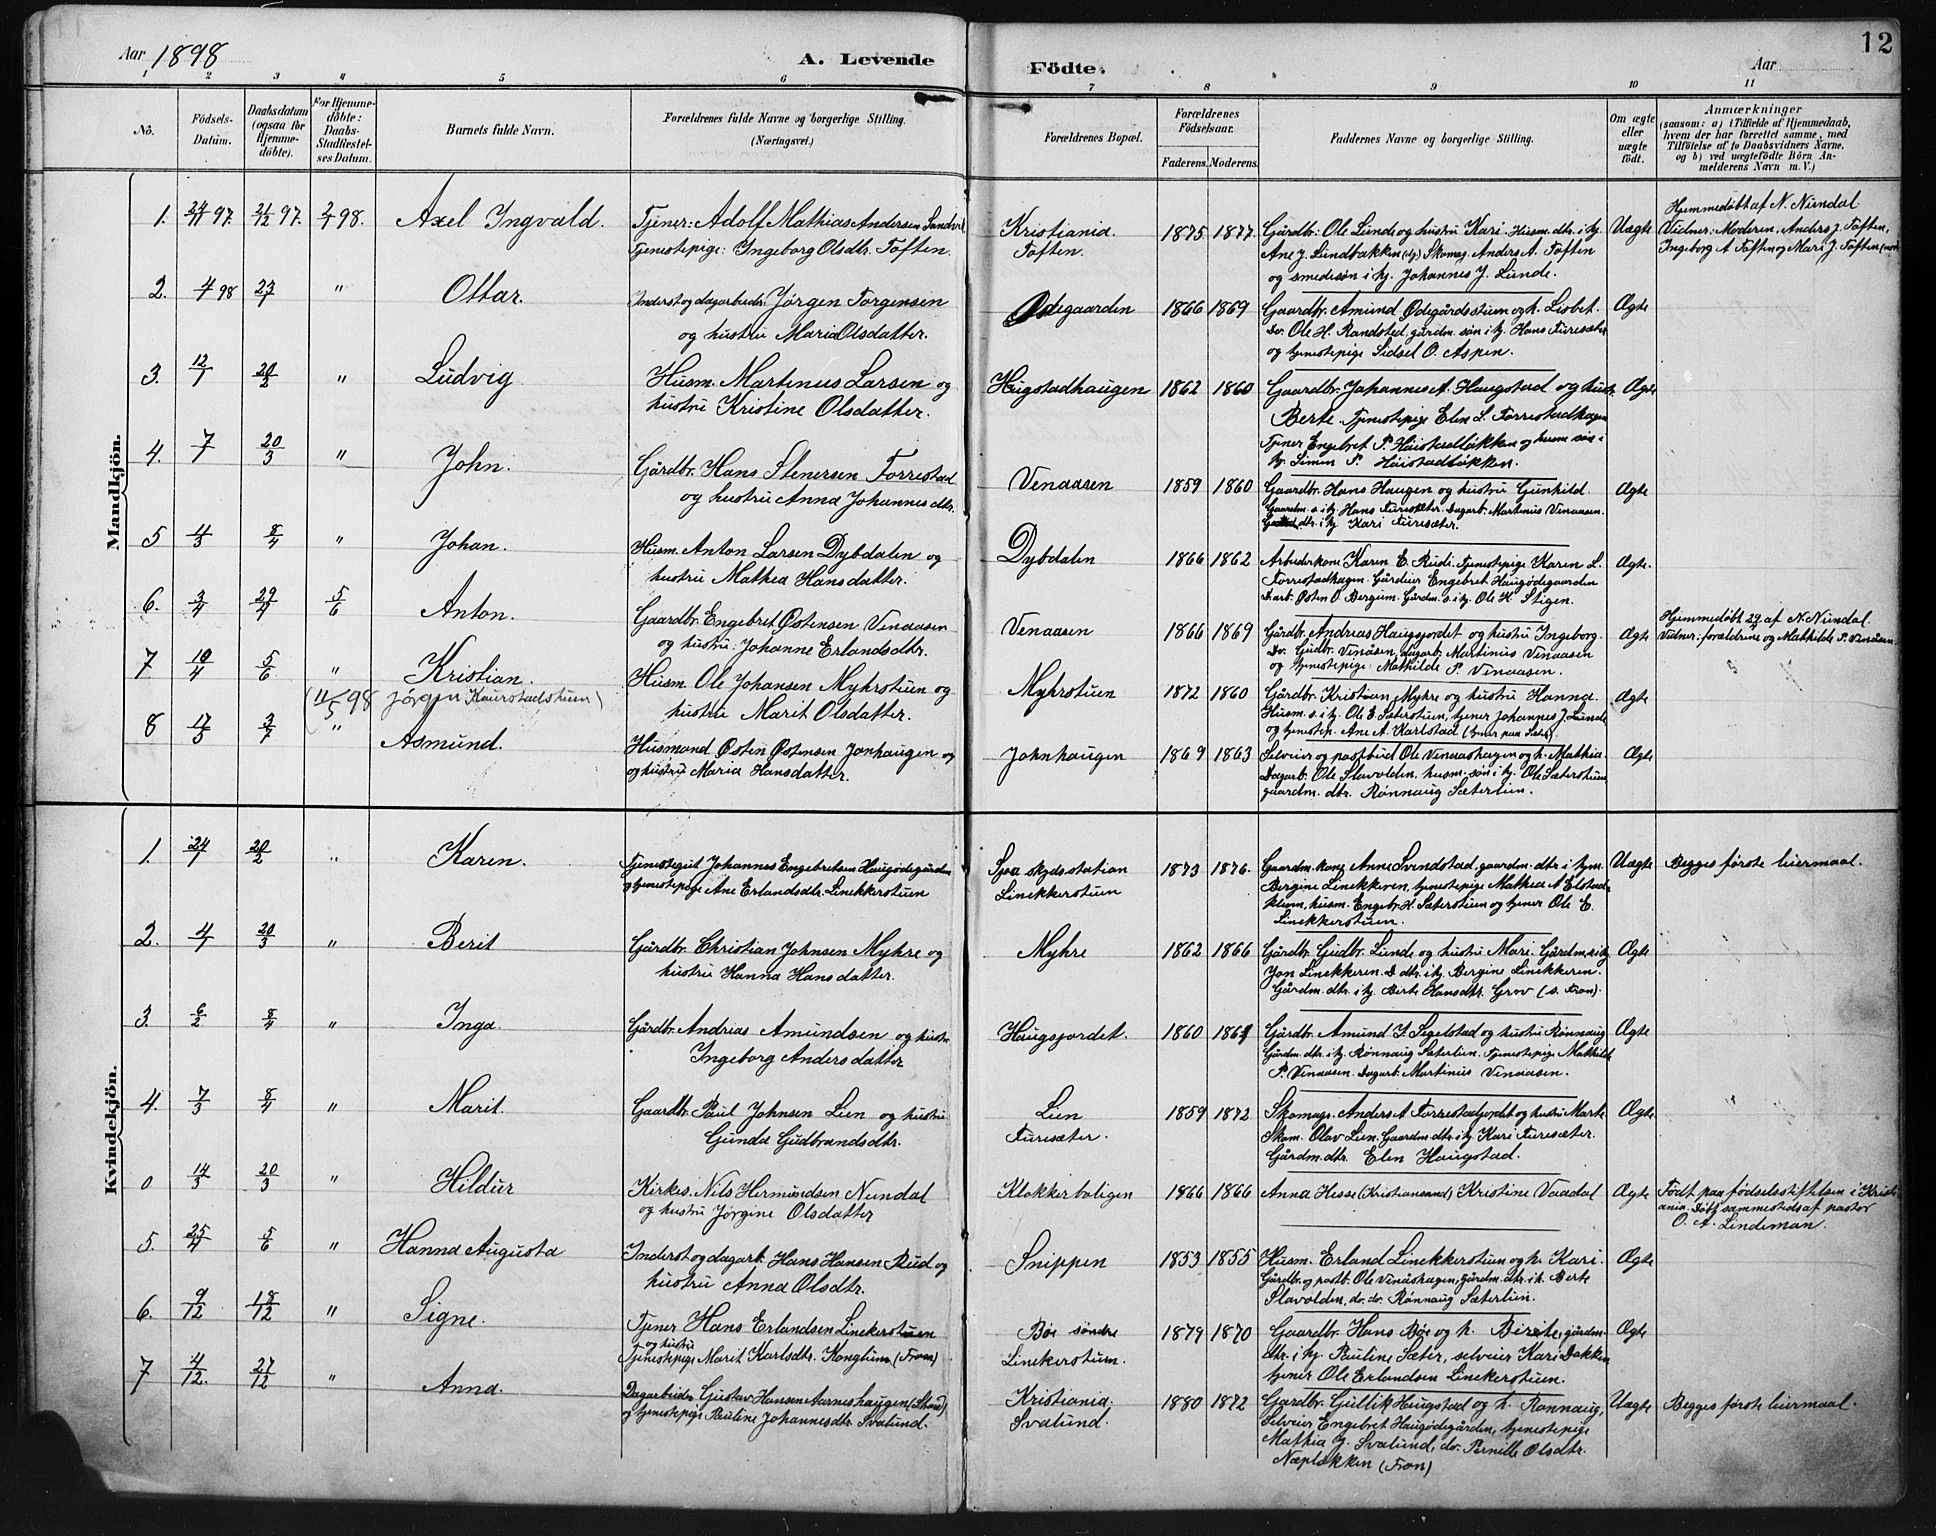 Aar 1898
A. Levende
Födte.
Aar
12
1 2 3 4 5 6 7 8 9 10 11
No.
Födsels-
Datum.
Daabsdatum
(ogsaa for
Hjemme-
döbte).
For Hjemme-
döbte:
Daabs-
Stadfæstel-
ses Datum.
Barnets fulde Navn.
Forældrenes fulde Navne og borgerlige Stilling.
(Næringsvei.)
Forældrenes Bopæl.
Forældrenes
Födselsaar.
Faderens. Moderens.
Faddernes Navne og borgerlige Stilling.
Om ægte
eller
uægte
födt.
Anmærkninger
(saasom: a) i Tilfælde af Hjemmedaab,
hvem der har forrettet samme, med
Tilföielse af to Daabsvidners Navne,
og b) ved uægtefödte Börn An-
melderens Navn m.V.)
Mandkjön.
1. 24/11 97. 21/12 97. 2/1 98. Axel Ingvald. Tjener: Adolf Mathias Andersen Sandvik
Tjenestepige: Ingeborg Olsdtr. Toften.
Kristiania.
Toften.
1875 1877. Gårdbr. Ole Lunde og hustru Kari. Husm. dtr. i hj.
Ane J. Lundbakken (dy) Skomag. Anders A. Toften
og smedesøn i hj. Johannes J. Lunde.
Uægte
Hjemmedøbt af N. Nundal
Vidner: Moderen, Anders J. Toften,
Ingeborg A Toften og Mari J. Toften
2. 4/1 98 23/1 " Ottar. Inderst og dagarbeider Jørgen Torgensen
og hustru Maria Olsdatter.
Ødegaarden 1866 1869 Gaardbr. Amund Ødegårdsstuen og h. Lisbet.
do. Ole H. Randsted, gårdm. søn i hj. Hans Furesæter
og tjenestepige Sidsel O. Aspen.
Ægte
3. 12/1 20/3 " Ludvig Husm. Martinus Larsen og
hustru Kristine Olsdatter.
Hugstadhaugen 1862 1860 Gaardbr. Johannes A. Haugstad og hustr.
Berte. Tjenestepige Elen L. Forrestadhagen
Tjener Engebret P. Haustadløkken og husm søn i
hj. Simen P. Haustadløkken.
Ægte
4. 7/1 20/3 " John. Gårdbr. Hans Stenersen Forrestad
og hustru Anna Johannesdtr.
Venaasen 1859 1860 Gaardbr. Hans Haugen og hustru Gunhild.
Gaardm. s. i hj. Hans Furesæter. Dagarb. Martinus Venaasen.
dtr. i hj. Kari Furesæter.
Ægte
5 4/3 8/4 " Johan. Husm. Anton Larsen Dybdalen og
hustru Mathea Hansdatter.
Dybdalen 1866 1862 Arbeiderkone Karen E. Rudi. Tjenestepige Karen L.
Forrestadhagen. Gårdeier Engebret Haugødegaarden
D. arb. Østen O. Bergum. Gårdm. s. i hj. Ole H Stigen.
Ægte.
6. 3/4 29/4 5/6 Anton. Gaardbr. Engebret Østensen Venaasen
og hustru: Johanne Erlandsdtr.
Venaasen 1866 1869 Gårdbr. Andreas Haugsjordet og hustru Ingeborg.
Do. Gudbr. Venåsen, dagarb. Martinus Venaasen
og tjenestepige: Mathilde P. Venaasen.
Ægte
Hjemmedøbt 29 af N. Nundal
Vidner: forældrene og Mathilde P. Venåsen
7 10/4 5/6 " Kristian. Husm. Ole Johansen Myhrstuen og
hustru Marit Olsdatter.
Myhrstuen 1872 1860 Gårdbr. Kristian Myhre og hustru Hanna.
Husm. s. i hj. Ole E. Sæterstuen, tjener Johannes J. Lunde
og tjenestep. Ane A. Karlstad
Ægte
(11/5 98 Jørgen Kaurstadstuen)
8 17/5 3/7 " Asmund. Husmand Østen Østensen Jonhaugen og
og hustru Maria Hansdatter.
Johnhaugen 1869 1863 Selveier og postbud Ole Venaashagen og h. Mathea.
Dagarb. Ole Slavolden, husm. søn i hj. Ole Sæterstuen
gaardm. dtr. Rønnaug Sæterlien.
Ægte
Kvindekjön.
1. 24/1 20/2 " Karen. Tjenestegut Johannes Engebretsen Haugødegården
og tjenestepige Ane Erlandsdtr. Linekkerstuen
Sjoa skydsstation
Linekkerstuen
1873 1876. Gaardm. kone Anne Svendstad, gaardm. dtr i hjem.
Bergine Linekkeren, tjenestepige Mathea A Elstad-
kleven, husm. Engebr. H. Sæterstuen og tjener Ole E.
Linekkerstuen.
Uægte
Begges første leiermaal.
2. 4/1 20/3 " Berit Gårdbr. Christian Johnsen Myhre og
hustru Hanna Hansdatter.
Myhre 1862 1866 Gårdbr. Gudbr. Lunde og hustru Mari. Gårdm. s. i hj.
Jon Linekkeren. D dtr. i hj. Bergine Linekkeren.
Gårdm. dtr. i hj. Berte Hansdtr. Grov (s. Fron).
Ægte
3. 6/2 8/4 " Inga. Gårdbr. Andrias Amundsen og hustr
Ingeborg Andersdatter
Haugsjordet. 1860 1861 Gårdbr. Amund I. Segelstad og hustru Rønnaug
Gårdm. dtr. i hj. Rønnaug Sæterlien. Tjenestepige Mathilde
P. Venaasen. Dagarb. Martinus Venaasen.
Ægte
4. 7/3 8/4 " Marit. Gaardbr. Paul Johnsen Lien og hustru
Gunda Gudbrandsdtr.
Lien
Furesæter.
1859 1872. Skomagr. Anders A Forrestadjordet og hustru Marte
Skom. Olav Lien. Gaardm. dtr. i hj. Kari Furesæter.
Gårdm. dtr. Elen Haugstad.
Ægte
0 14/3 20/3 " Hildur Kirkes. Nils Hermundsen Nundal
og hustru Jørgine Olsdatter
Klokkerboligen 1866 1866 Anna Hesse (Kristiansand) Kristine Vaadal
Ægte
Født paa fødselsstiftelsen i Kristi-
ania. Døbt sammesteds af pastor
O. A. Lindeman.
5. 25/4 5/6 " Hanna Augusta Inderst og dagarb. Hans Hansen Rud og
hustru Anna Olsdtr.
Snippen 1853 1855 Husm. Erland Linekkerstuen og h. Kari.
Gårdbr. og postb. Ole Venåshagen, gårdm. dtr. i h. Berte
Slavolden, do. do. Rønnaug Sæterlien.
Ægte
6. 9/12 18/12 " Signe. Tjener Hans Erlandsen Linekerstuen
og hustru
Tjenestepige Marit Karlsdtr. Konglum (Fron)
Bøe søndre
Linekerstuen.
1879 1870 Gaardbr. Hans Bøe og h. Birete, gårdm.
dtr. i hj. Pauline Sæter, selveier Kari Dokken
tjener Ole Erlandsen Linekerstuen.
Ægte
7 4/12. 27/12 " Anna. Dagarbeider Gustav Hansen Aarneshaugen
og tjenestepige Pauline Johannesdtr. Svalund.
Kristiania.
Svalund.
1880 1872 Gardbr. Gullik Haugstad og h. Rønnaug,
Selveier Engebret Haugødegården, tjenestepige
Mathia J. Svalund, do. Pernille Olsdtr.
Næpløkken (Fron)
Uægte
Begges første leiermaal.